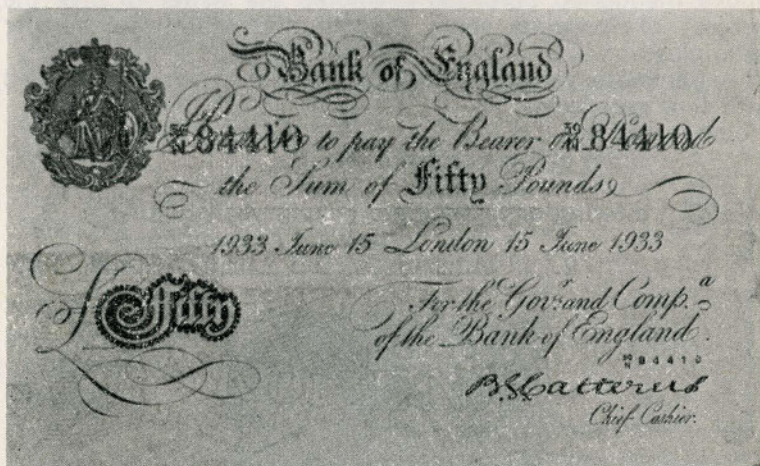 Bank of England
84410 to pay the Bearer on Demand 84410
the Sum of Fifty Pounds
1933 June 15 London 15 June 1933
£Fifty
For the Govr. and Compa.
of the Bank of England.
84410
B.G. Catterns
Chief Cashier.